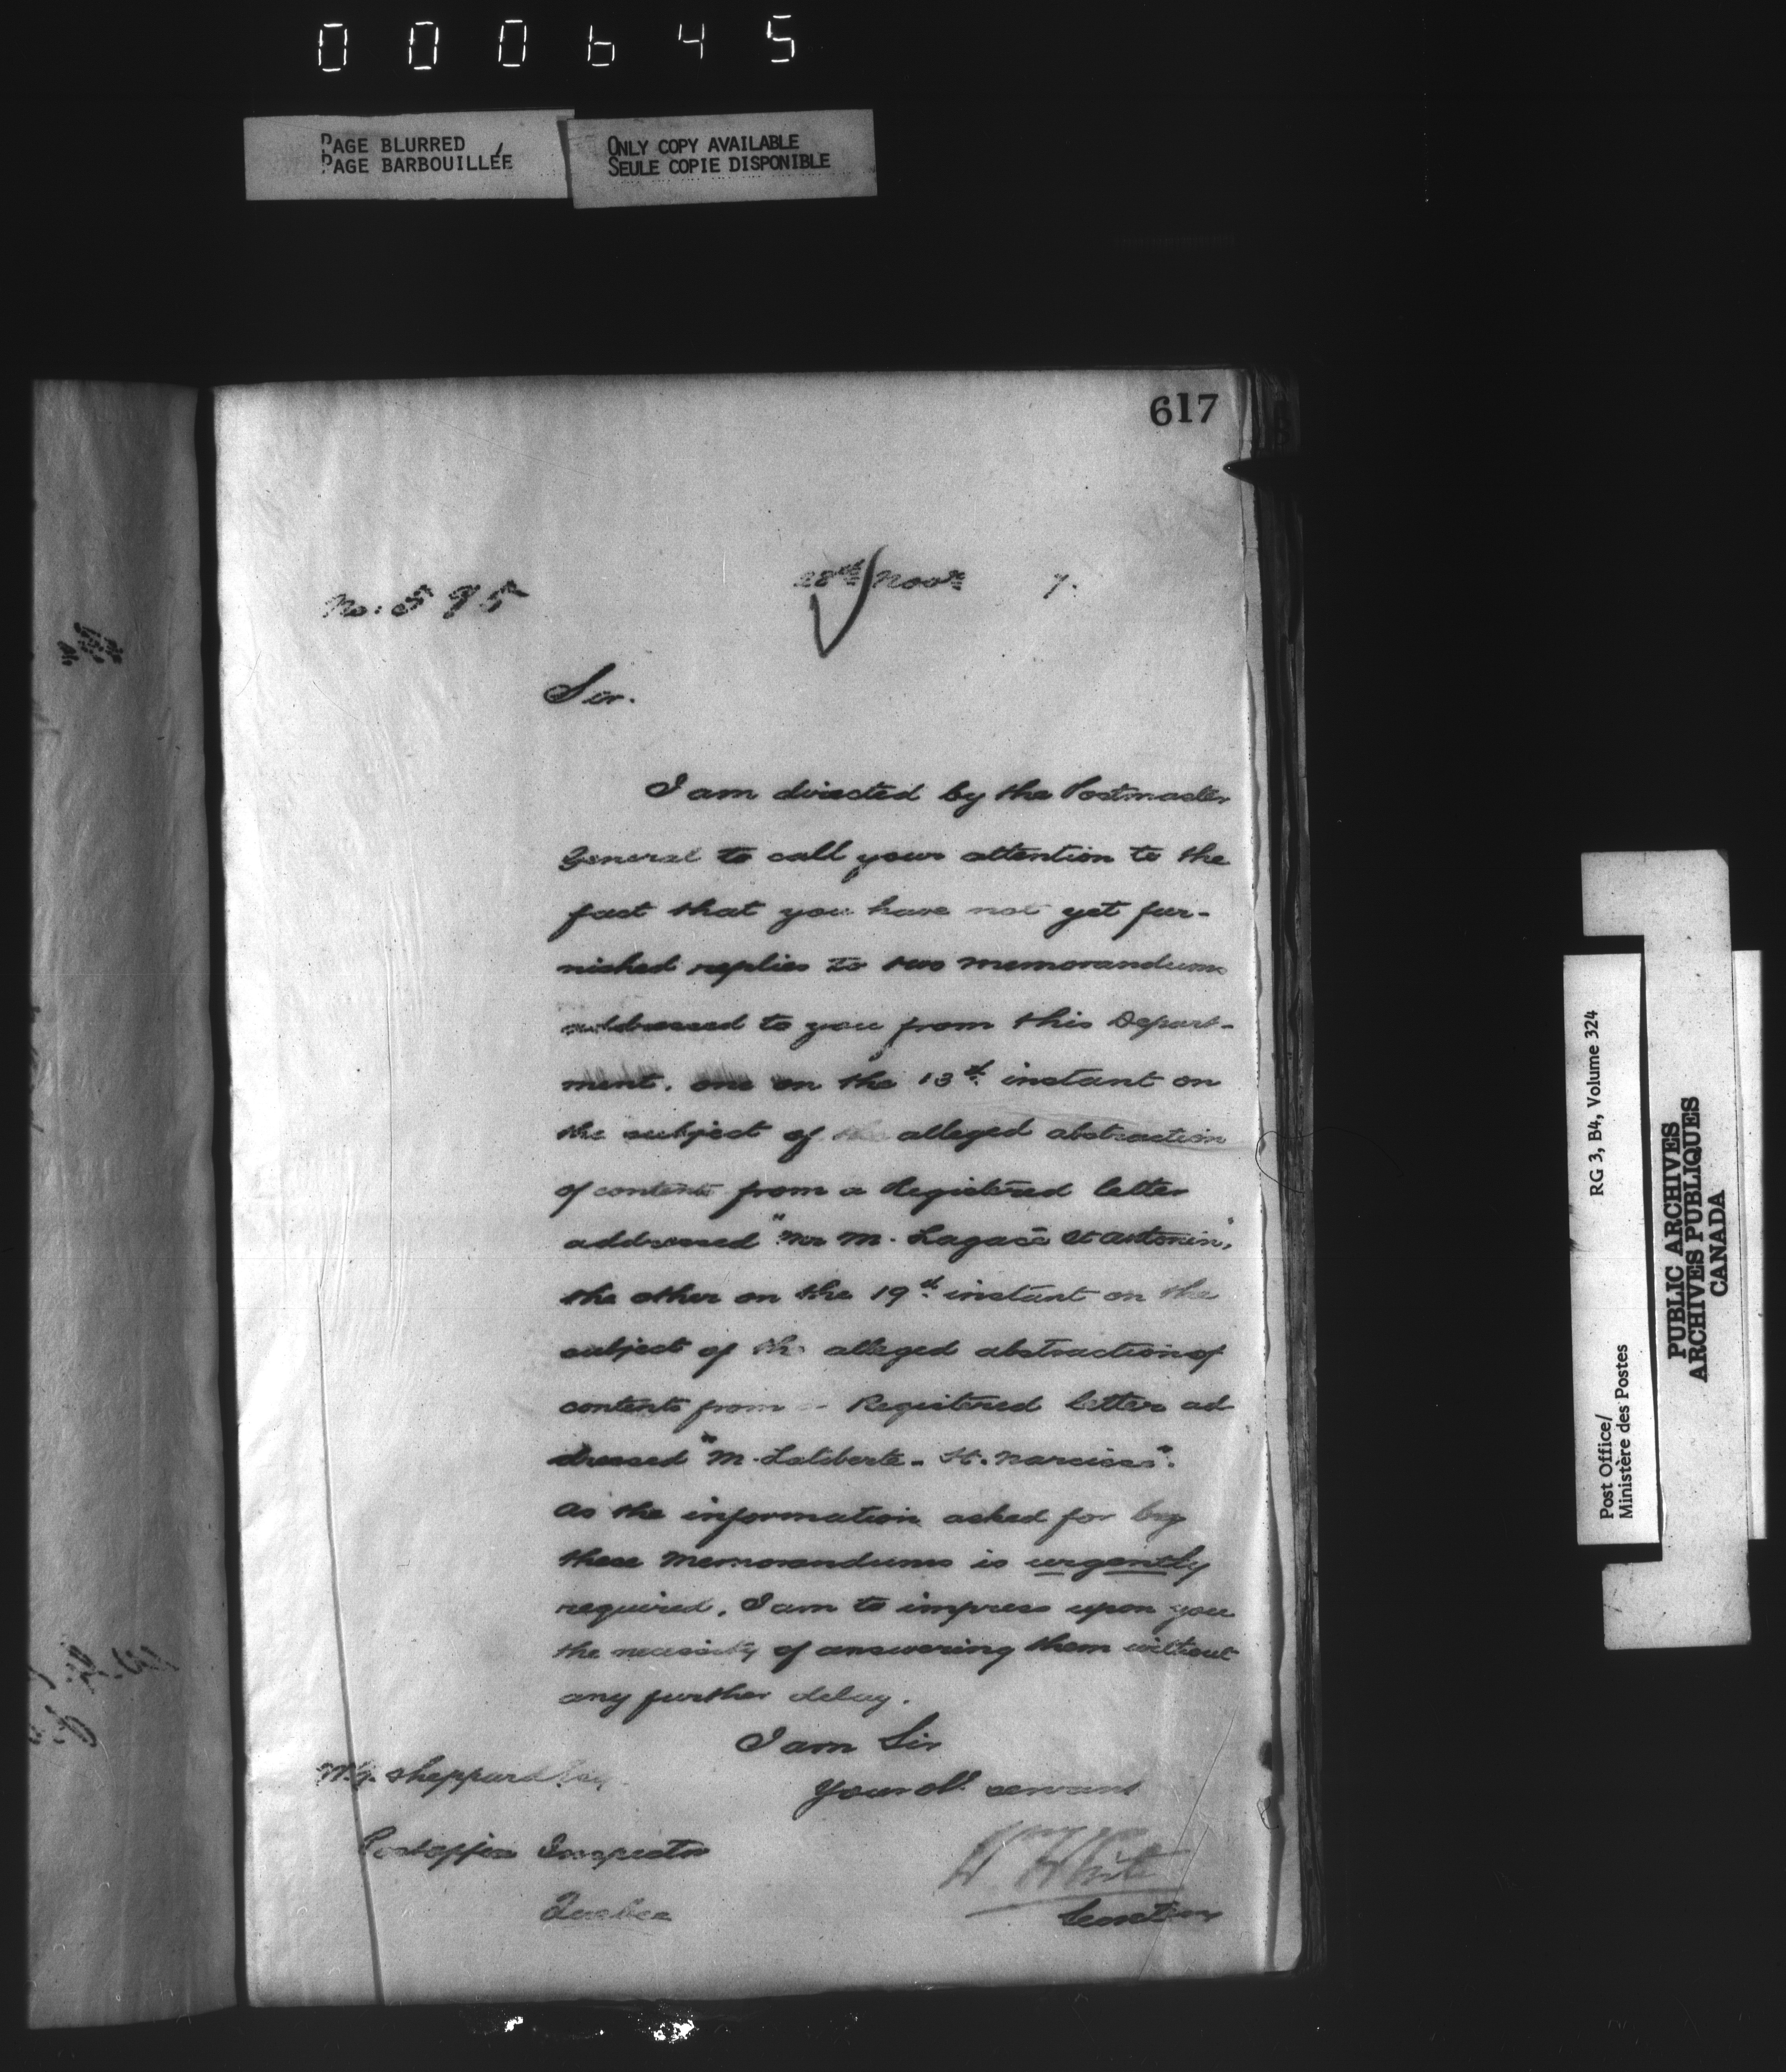 000645
PAGE BLURRED
PAGE BARBOUILLÉE
ONLY COPY AVAILABLE
SEULE COPIE DISPONIBLE
617
28th Novr 7.
No. 595
Sir.
I am directed by the Postmaster
General to call your attention to the
fact that you have not yet fur-
nished replies to two memorandums
addressed to you from this Depart-
ment. one on the 13th instant on
the subject of the alleged abstraction
of contents from a Registered letter
addressed "Mr M. Lagacé St Antonin",
the other on the 19th instant on the
subject of the alleged abstraction of
contents from a Registered letter ad
dressed "M. Laliberte - St. Narcisse".
As the information asked for by
these memorandums is urgently
required, I am to impress upon you
the necessity of answering them without
any further delay.
I am Sir
Your obt. servant
W. G. Sheppard Esq
Postoffice Inspector
Quebec
W White
Secretary
RG 3, B4, Volume 324
Post Office/
Ministère des Postes
PUBLIC ARCHIVES
ARCHIVES PUBLIQUES
CANADA